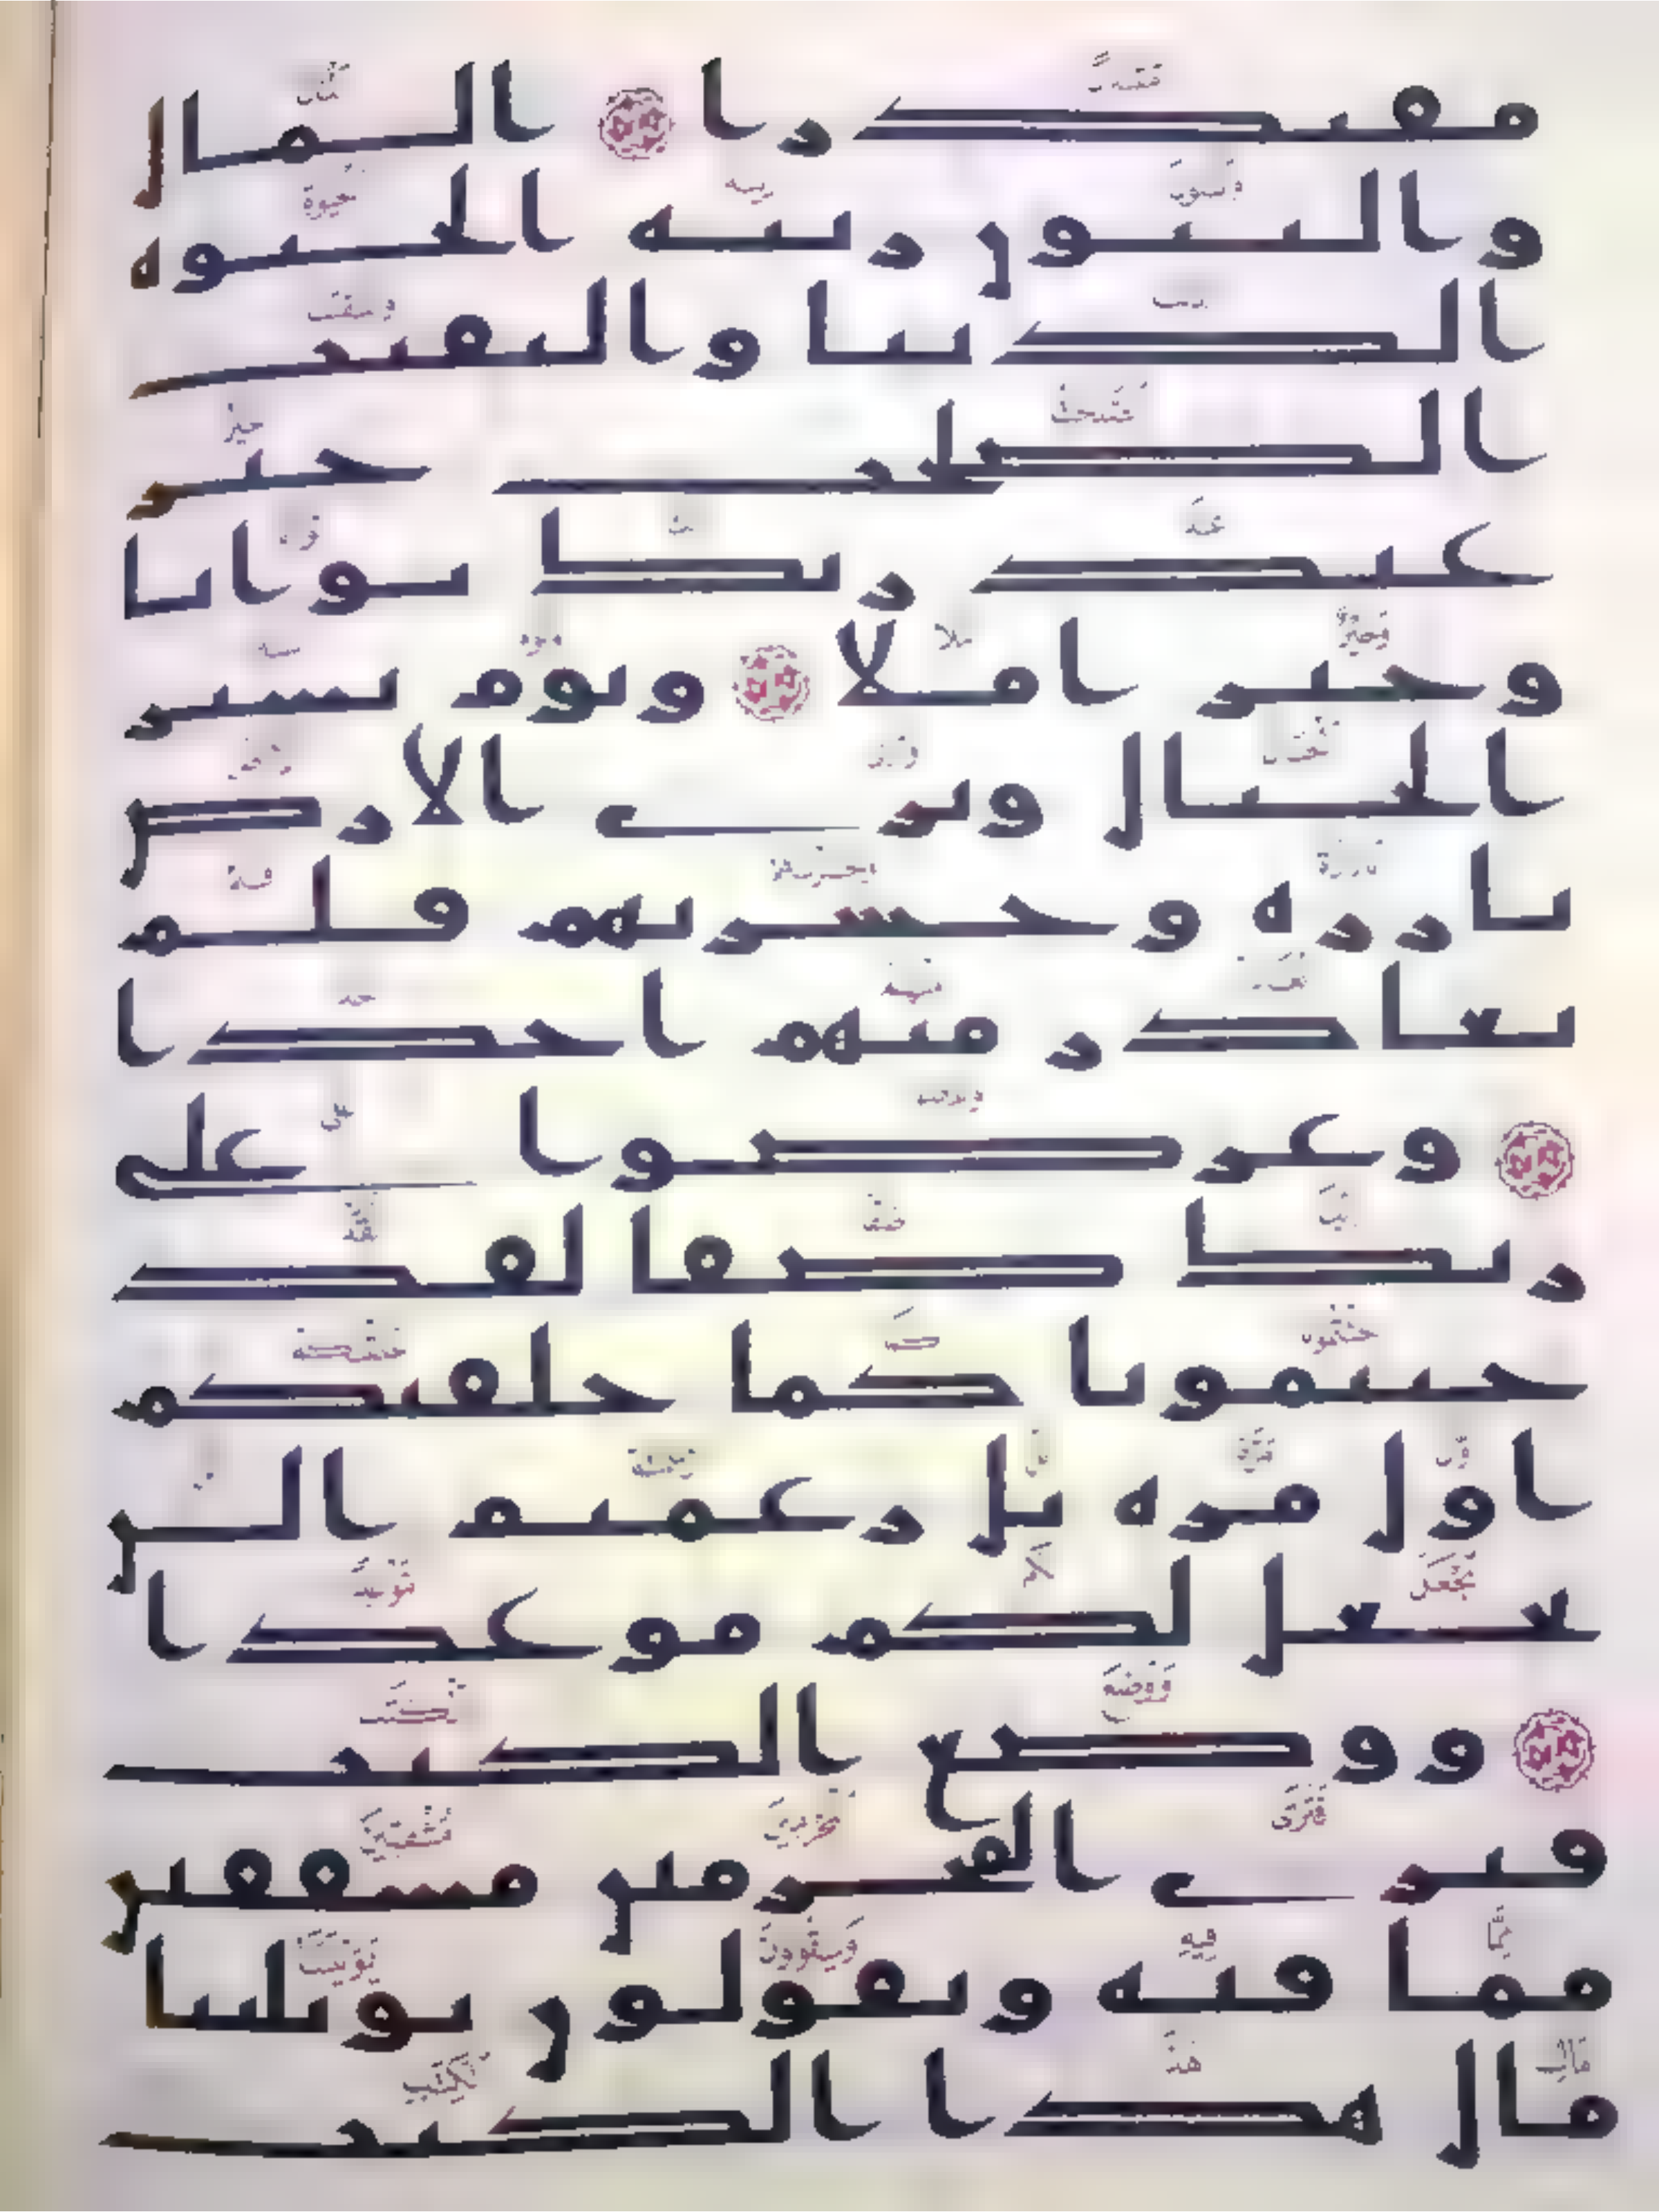 مقتدرا المال
والبنون زينة الحيوة
الدنيا والبقيت
الصلحت خير
عند ربك ثوابا
وخير املا ويوم نسير
الجبال وترى الارض
بارزة وحشرنهم فلم
نغادر منهم احدا
وعرضوا على
ربك صفا لقد
جئتمونا كما خلقنكم
اول مرة بل زعمتم الن
نجعل لكم موعدا
ووضع الكتب
فترى المجرمين مشفقين
مما فيه ويقولون يويلتنا
مال هذا الكتب